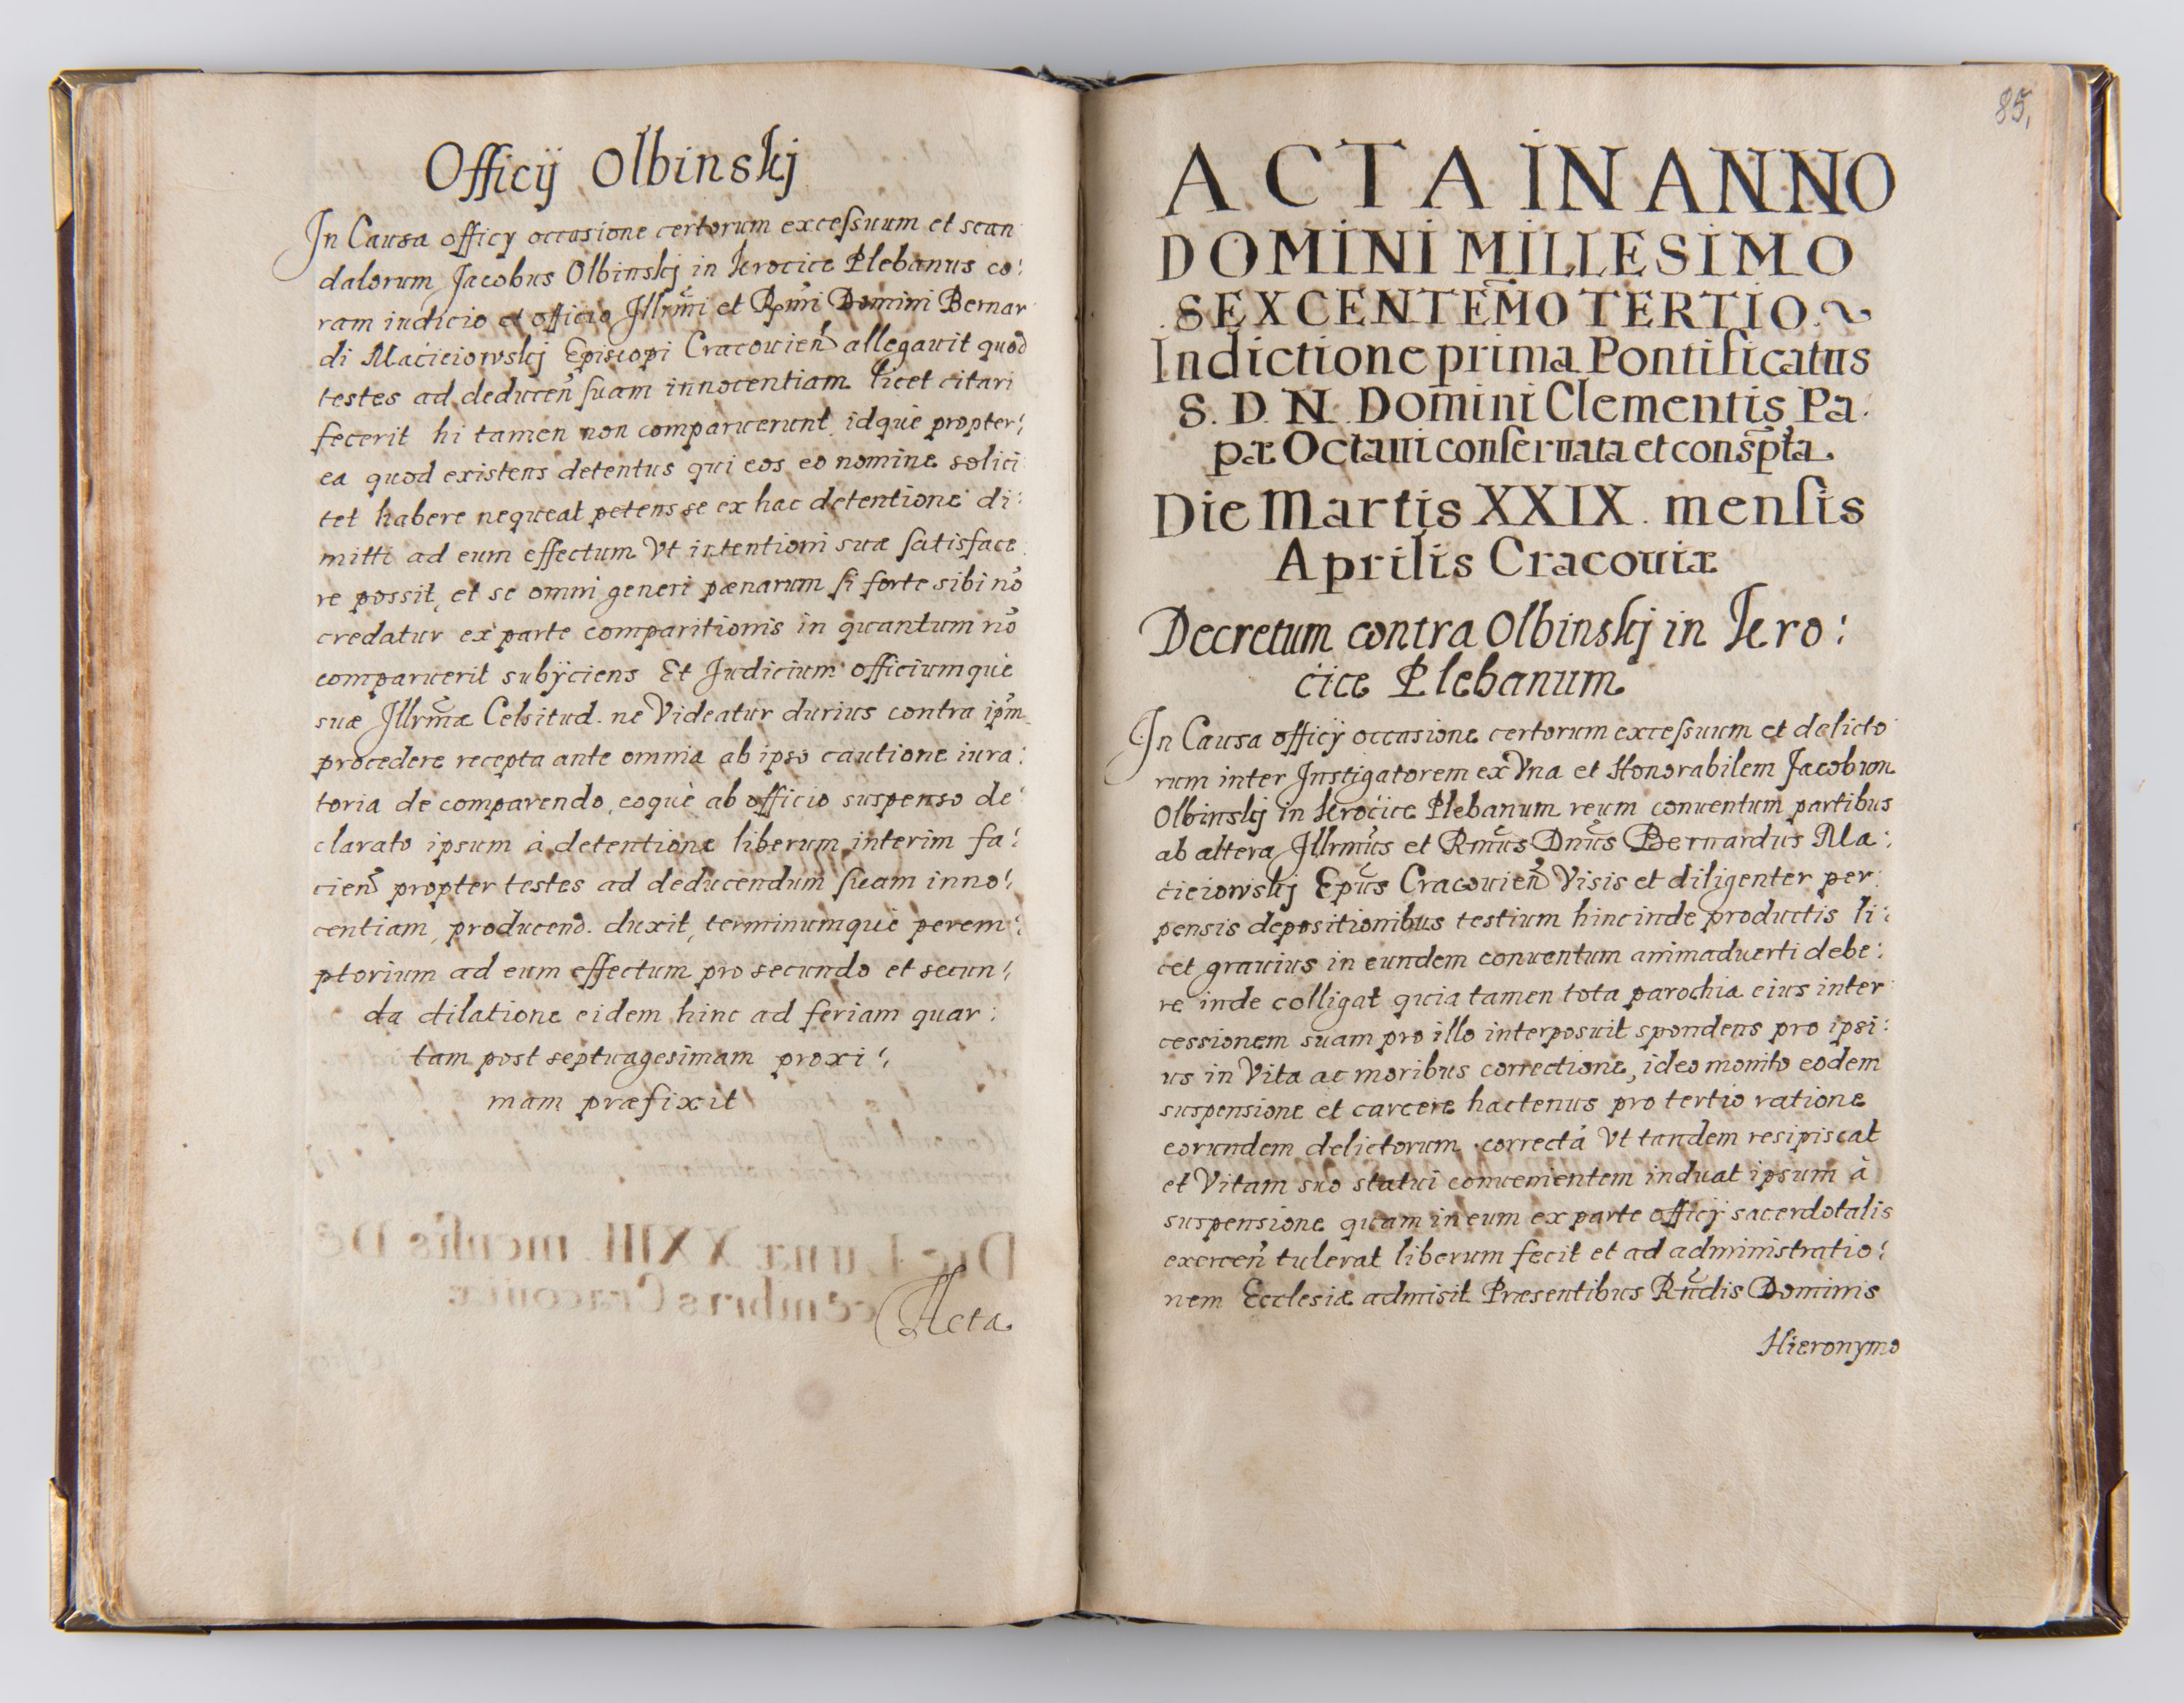 Officÿ Olbinskj
In Causa officy occasione certorum exceſsuum et scan
dalorum Jacobus Olbinskj in Krocice Plebanus co:
ram iudicio et officio Jllrm̃i et Rm̃i Domini Bernar
di Macieiowskj Episcopi Cracouien̄ allegauit quod
testes ad deducen̄ ſuam innocentiam licet citari
fecerit hi tamen non comparuerunt idquè propter:
ea quod existens detentus qui eos eo nomine solici
tet habere nequeat petens se ex hac detentione di:
mitti ad eum effectum Vt intentioni suæ ſatisface
re possit, et se omni generi pænarum ſi forte sibi nõ
credatur ex parte comparitionis in quantum nõ
comparuerit subÿciens Et Judicium officiumquè
suæ Jllrm̃æ Celsitud. ne Videatur durius contra ip̃m
procedere recepta ante omnia ab ipso cautione iura:
toria de comparendo, eoquè ab officio suspenso de
clarato ipsum à detentione liberum interim fa:
cien̄ propter testes ad deducendum ſuam inno:
centiam, producend. duxit, terminumquè perem:
ptorium ad eum effectum pro secundo et secun:
da dilatione eidem hinc ad feriam quar:
tam post septuagesimam proxi:
mam præfixit
Acta
85,
ACTA IN ANNO
DOMINI MILLESIMO
SEXCENTEM̃O TERTIO
Indictione prima Pontificatus
S. D. N. Domini Clementis Pa:
pæ Octaui conſeruata et cons̃pta.
Die Martis XXIX. menſis
Aprilis Cracouiæ
Decretum contra Olbinskj in Kro:
cice Plebanum
In Causa officÿ occasione certorum exceſsuum et delicto
rum inter Jnstigatorem ex Vna et Honorabilem Jacobum
Olbinskj in Krocice Plebanum reum conuentum partibus
ab altera Jllrm̃us et Rm̃us Dn̄us Bernardus Ma:
cieiowskj Ep̃us Cracouien̄ Visis et diligenter per:
pensis depositionibus testium hincinde productis li:
cet grauius in eundem conuentum animaduerti debe:
re inde colligat quia tamen tota parochia eius inter
cessionem suam pro illo interposuit spondens pro ipsi:
us in Vita ac moribus correctione, ideo monito eodem
suspensione et carcere hactenus pro tertio ratione
eorundem delictorum correcta Vt tandem resipiscat
et Vitam suo statui conuenientem induat ipsum à
suspensione quam in eum ex parte officÿ sacerdotalis
exercen̄ tulerat liberum fecit et ad administratio:
nem Ecclesiæ admisit Præsentibus Rñdis Dominis
Hieronymo